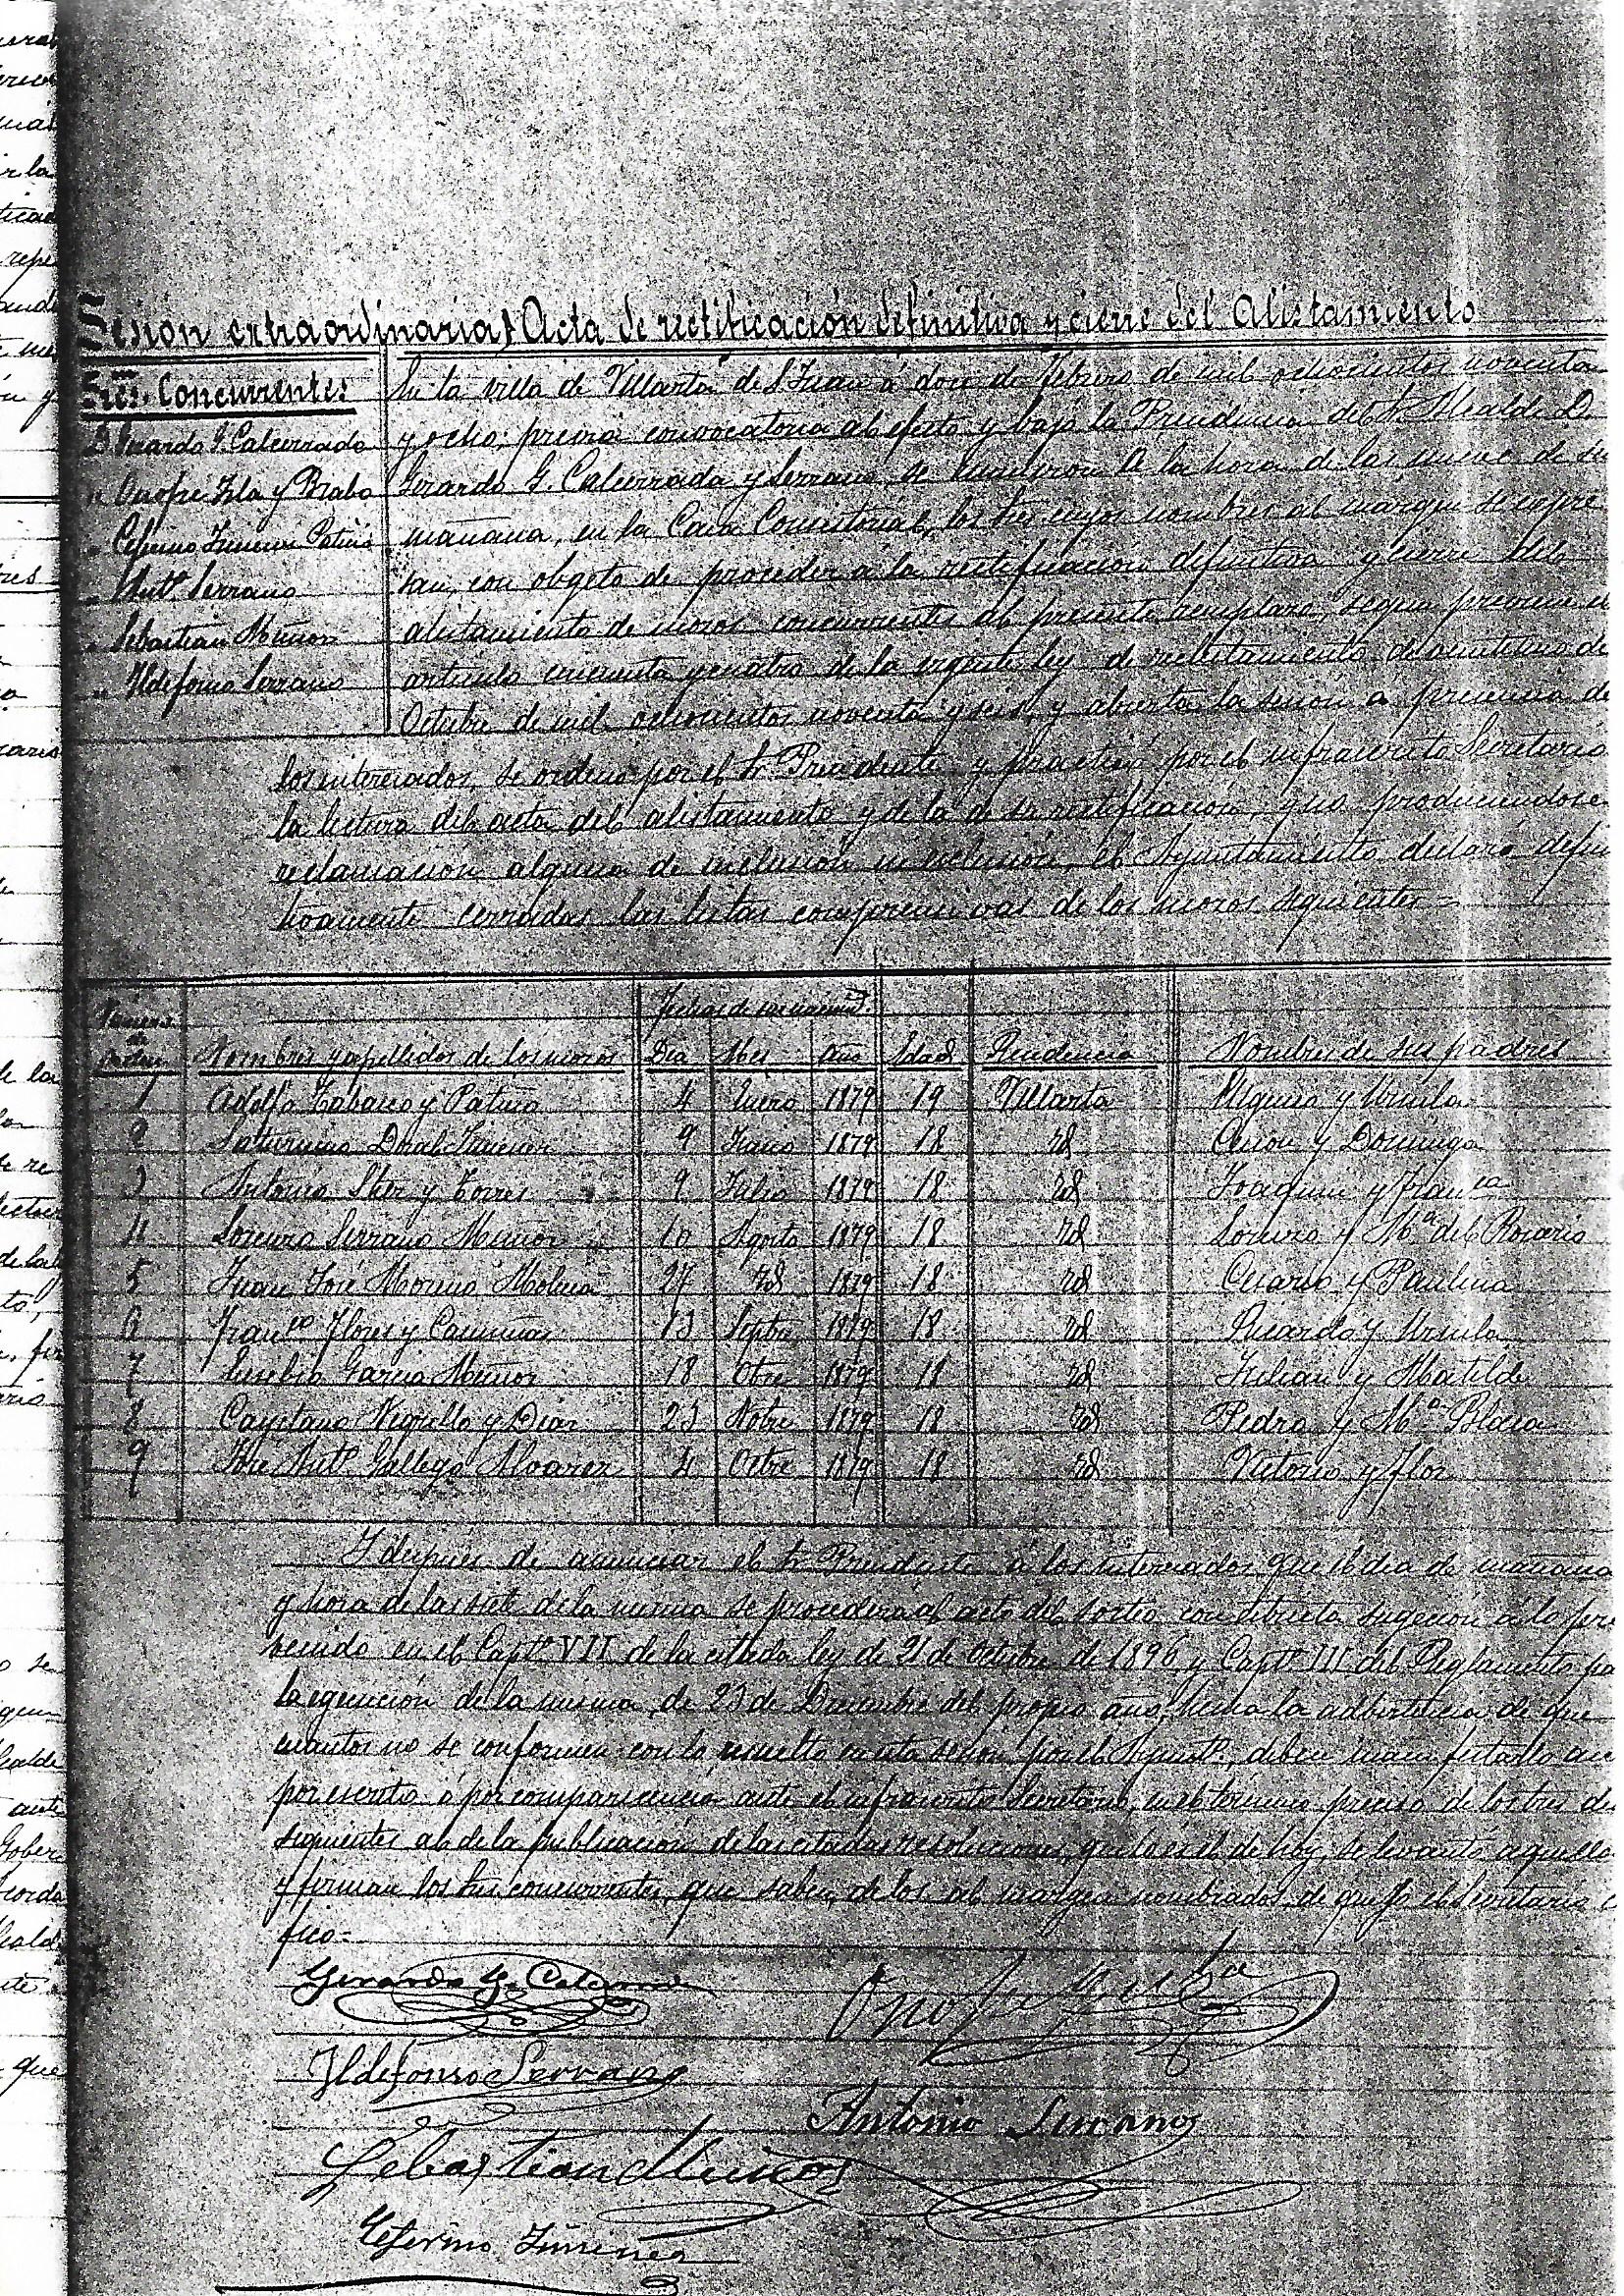 Sesión extraordinaria Acta de rectificación definitiva y cierre del Alistamiento
Sres. Concurrentes
D. Gerardo G. Calcerrada
" Onofre Isla y Brabo
" Ceferino Jimenez Patiño
" Antº Serrano
" Sebastian Muñoz
" Yldefonso Serrano
En la villa de Villarta de S. Juan á doce de Febrero de mil ochocientos noventa
y ocho; previa convocatoria al efecto y bajo la Presidencia del Sr. Alcalde D.
Gerardo G. Calcerrada y Serrano, se reunieron á la hora de las nueve de su
mañana, en la Casa Consistorial, los Sres cuyos nombres al margen se expre
san, con obgeto de proceder á la rectificación definitiva y cierre del
alistamiento de mozos concurrentes al presente remplazo, segun previene el
articulo cincuenta y cuatro de la vigente ley de reclutamiento de veintiuno de
Octubre de mil ochocientos noventa y seis, y abierta la sesión a presencia de
los interesados, se ordenó por el Sr Presidente y practicó por el infrascrito Secretario
la lectura del acta del alistamiento y de la de su rectificación, y no produciendose
reclamación alguna de inclusión ni exclusión, el Ayuntamiento declaró defini
tivamente cerradas las listas comprensivas de los mozos siguientes =
Fechas de su nacimtº
Numº de orden Nombres y apellidos de los mozos Dia Mes Año Edad Residencia Nombres de sus padres
1 Adolfo Tabasco y Patiño 4 Enero 1879 19 Villarta Higinio y Ursula
2 Satturnino Doral Jimenez 9 Junio 1879 18 id Cenon y Dominga
3 Antonio y Torres 9 Julio 1879 18 id Joaquin y Franca
4 Lorenzo Serrano Muñoz 10 Agosto 1879 18 id Lorenzo y Mª del Rosario
5 Juan José Moreno Molina 27 id 1879 18 id Cesareo y Paulina
6 Franco Flores y Camuñas 13 Septbre 1879 18 id Ricardo y Ursula
7 Eusebio Garcia Muñoz 18 Otbre 1879 18 id Julian y Matilde
8 Cayetano Vigrillo y Diaz 23 Notbre 1879 18 id Pedro y Mª Blasa
9 José Antº Gallego Alvarez 4 Octre 1879 18 id Victorio y Flor
Y despues de anunciar el Sr Presidente á los interesados que el dia de mañana
y hora de las siete de la misma se procederá al acto del sorteo con estricta sugeción á lo pre
venido en el Captº VII de la citada ley de 21 de Octubre de 1896, y Captº III del Reglamento pa
la egecución de la misma de 23 de Diciembre del propio año, hecha la adbertencia de que
cuantos no se conformen con lo resuelto en esta sesión por el Ayuntº, deben manifestarlo
por escrito ó por comparecencia ante el infrascrito Secretario, en el término preciso de los tres di
siguientes al de la publicacion de las citadas resoluciones, que lo es el de hoy, se levantó aquella
y firman los Sres concurrentes que saben, de los al margen nombrados, de que yo el Secretario c
fico =
Gerardo G. Calcerrada
Onofre Isla
Yldefonso Serrano
Antonio Serrano
Sebastian Muñoz
Ceferino Jimenez